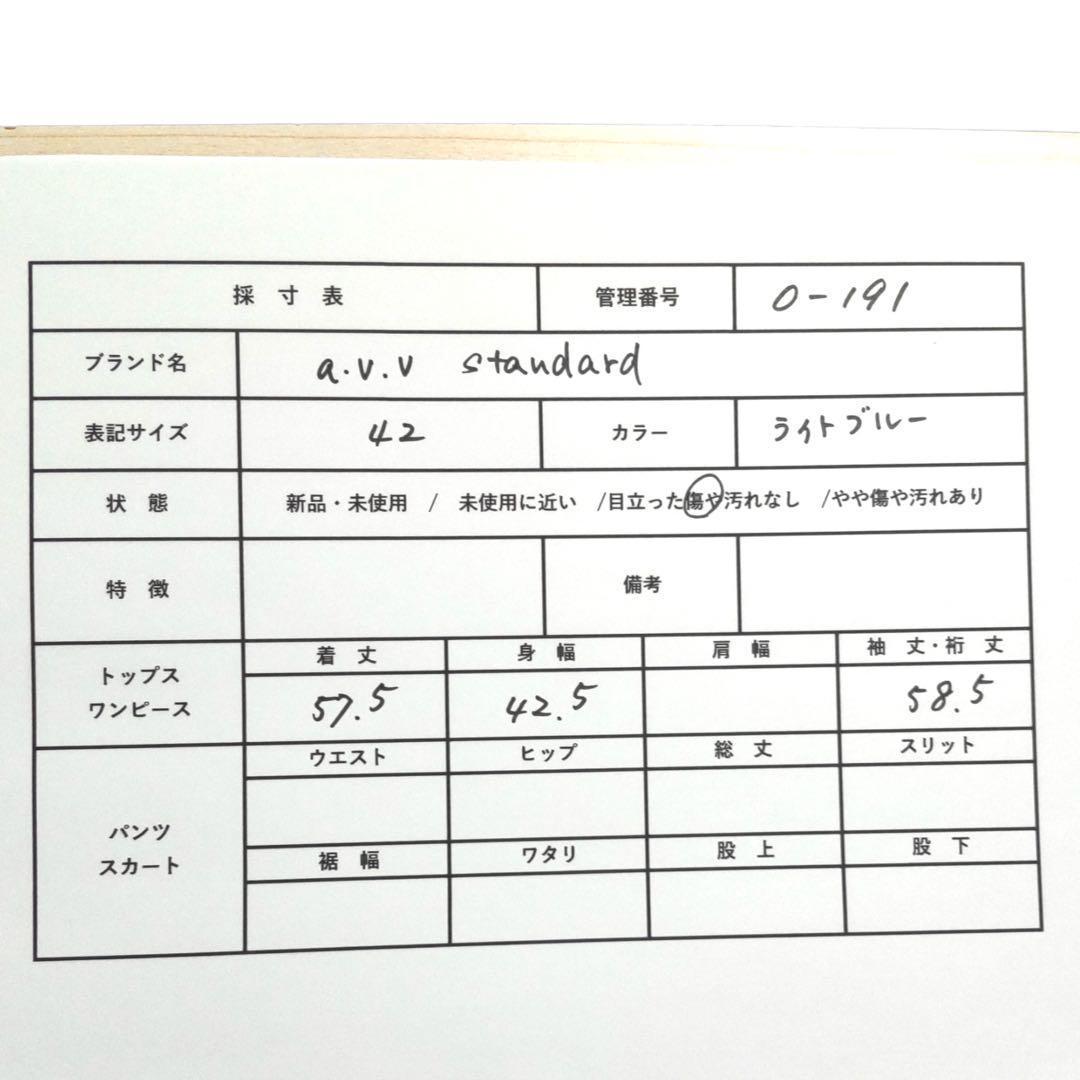 採寸表 管理番号 0-191
ブランド名 a.v.v standard
表記サイズ 42 カラー ライトブルー
状態 新品・未使用 / 未使用に近い /目立った傷や汚れなし /やや傷や汚れあり
特徴 備考
トップス ワンピース
着丈 身幅 肩幅 袖丈・裄丈
57.5 42.5 58.5
パンツ スカート
ウエスト ヒップ 総丈 スリット
裾幅 ワタリ 股上 股下